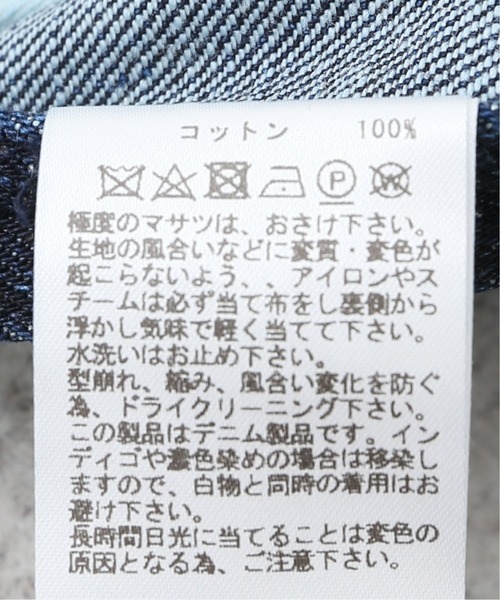 コットン 100%
P W
極度のマサツは、おさけ下さい。
生地の風合いなどに変質・変色が
起こらないよう、、アイロンやス
チームは必ず当て布をし裏側から
浮かし気味で軽く当てて下さい。
水洗いはお止め下さい。
型崩れ、縮み、風合い変化を防ぐ
為、ドライクリーニング下さい。
この製品はデニム製品です。イン
ディゴや濃色染めの場合は移染し
ますので、白物と同時の着用はお
避け下さい。
長時間日光に当てることは変色の
原因となる為、ご注意下さい。